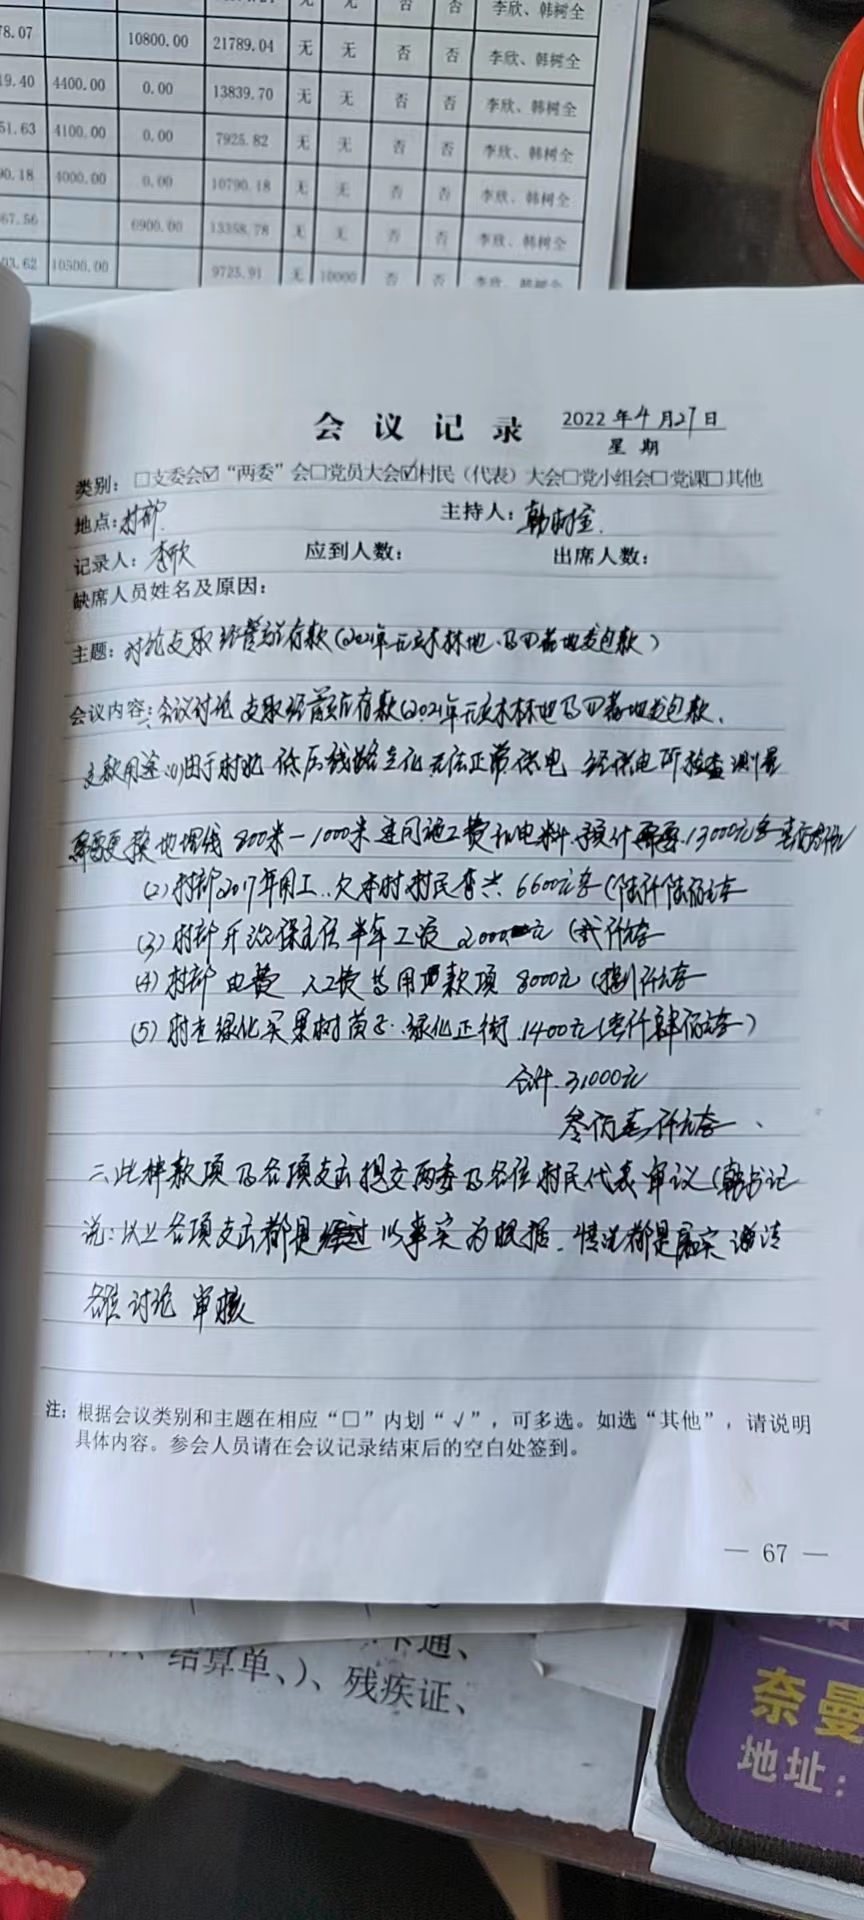 无 无 否 否 李欣、韩树全
78.07 10800.00 21789.04 无 无 否 否 李欣、韩树全
19.40 4400.00 0.00 13839.70 无 无 否 否 李欣、韩树全
51.63 4100.00 0.00 7925.82 无 无 否 否 李欣、韩树全
90.18 4000.00 0.00 10790.18 无 无 否 否 李欣、韩树全
67.56 6900.00 13358.78 无 无 否 否 李欣、韩树全
03.62 10500.00 9725.91 无 10000 否 否 李欣、韩树全
会 议 记 录 2022年4月27日
星 期
类别：□支委会☑“两委”会□党员大会☑村民（代表）大会□党小组会□党课□其他
地点：村部 主持人：韩树全
记录人：李欣 应到人数： 出席人数：
缺席人员姓名及原因：
主题：讨论支取经管站存款（2021年 林地、 地发包款）
会议内容：一、会议讨论支取经管站存款（2021年 林地及 地发包款、
支款用途（1）由于村北低压线路老化无法正常供电 经供电所检查测量
需要更换地埋线800米－1000米连同施工费和电料.预计需要.13000元
（2）村部2017年用工..欠本村村民李兴 6600元 （陆仟陆佰元
（3）村部开治保主任半年工资 2000元（贰仟元
（4）村部电费 人工费等用 款项 8000元（捌仟元
（5）村在绿化买果树苗子..绿化正街.1400元（壹仟肆佰元 ）
合计.31000元
仟元
二、此 款项及各项支出提交两委及各位村民代表审议（韩书记
说：以上各项支出都是经过以事实为根据.情况都是属实邀请
各位讨论审核
注：根据会议类别和主题在相应“□”内划“√”，可多选。如选“其他”，请说明
具体内容。参会人员请在会议记录结束后的空白处签到。
— 67 —
卡通、
结算单、）、残疾证、
奈曼
地址：